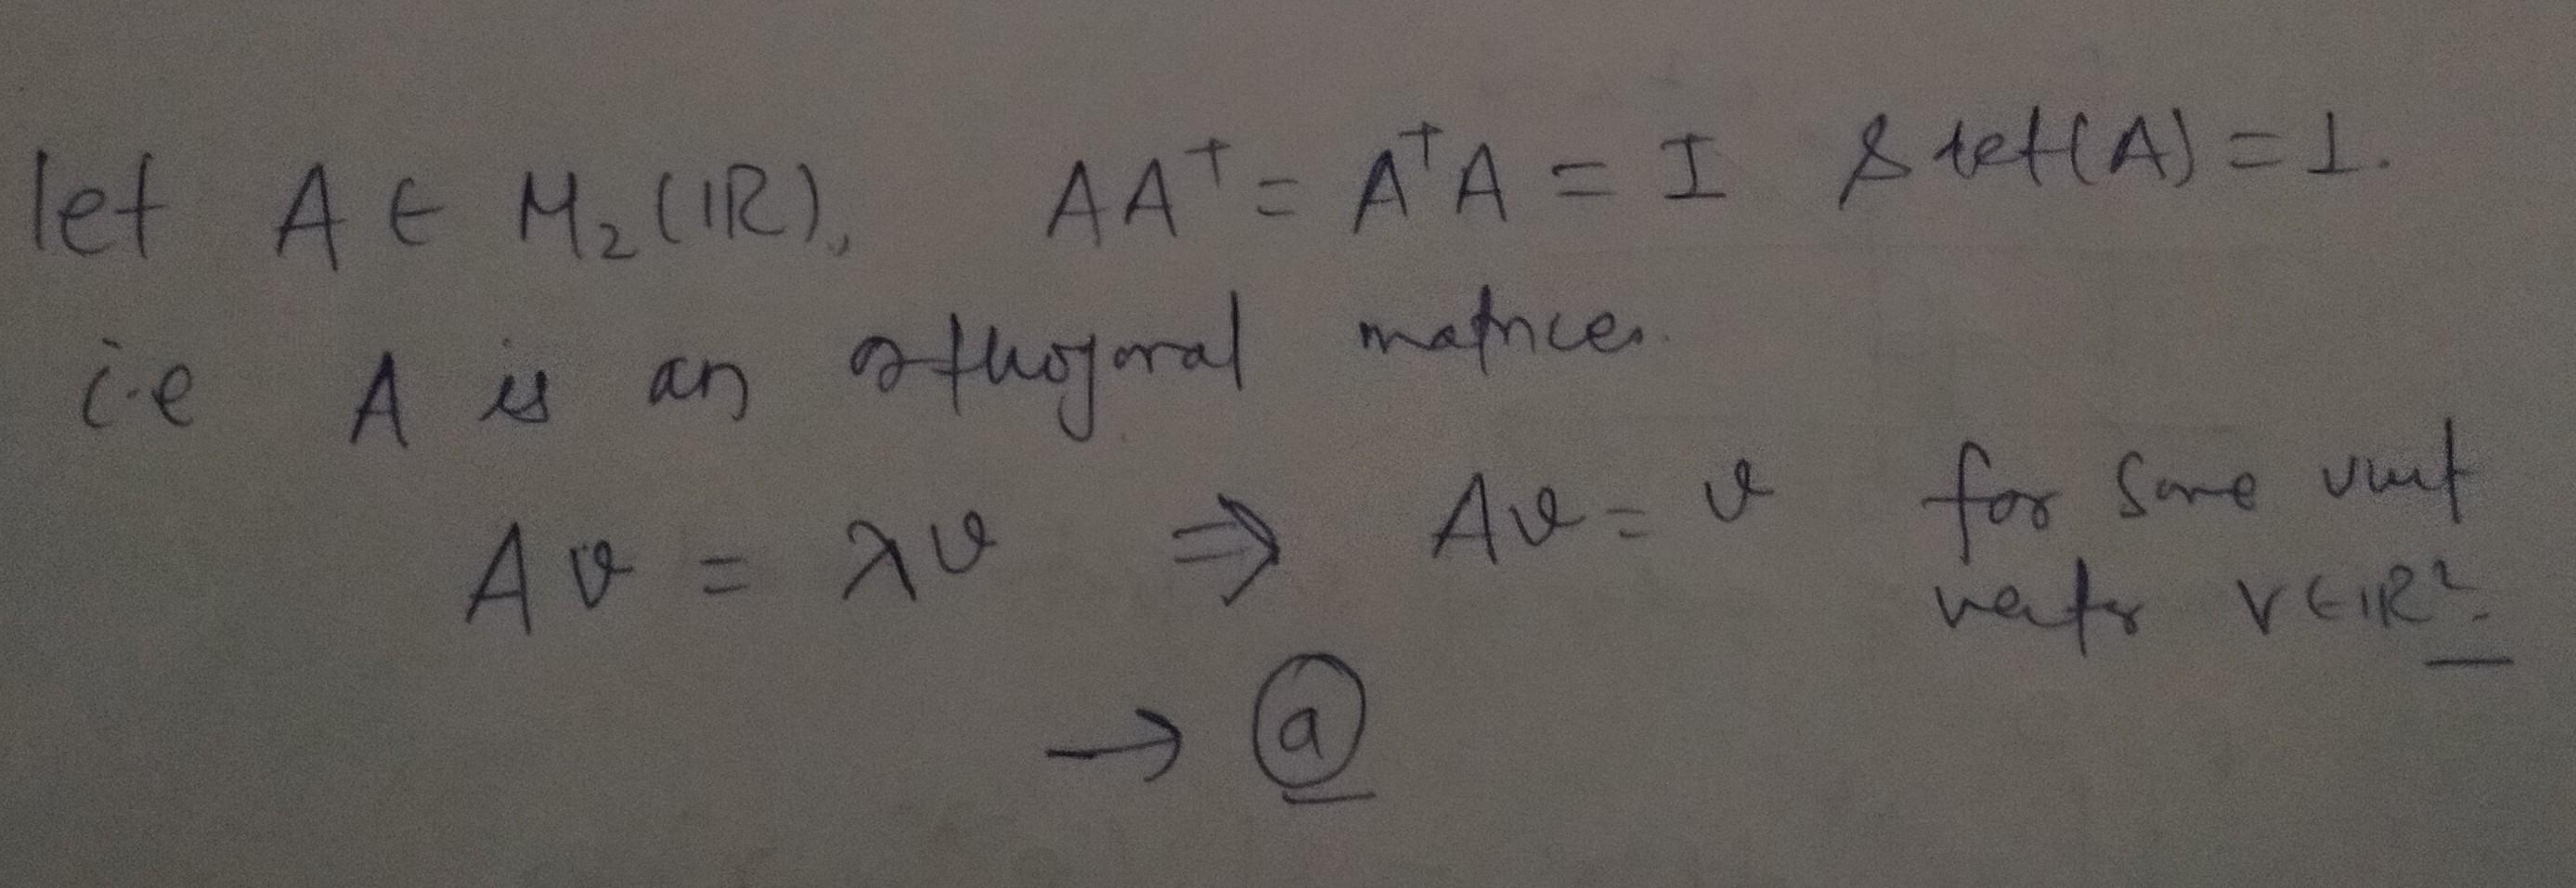 let A ∈ M₂(ℝ), AAᵀ = AᵀA = I & det(A) = 1.
i.e A is an orthogonal matrices.
Av = λv ⇒ Av = v for some unit
vector v ∈ ℝ².
→ ⓐ